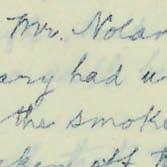 Mr. Nolan
ary had u
the smoke
off